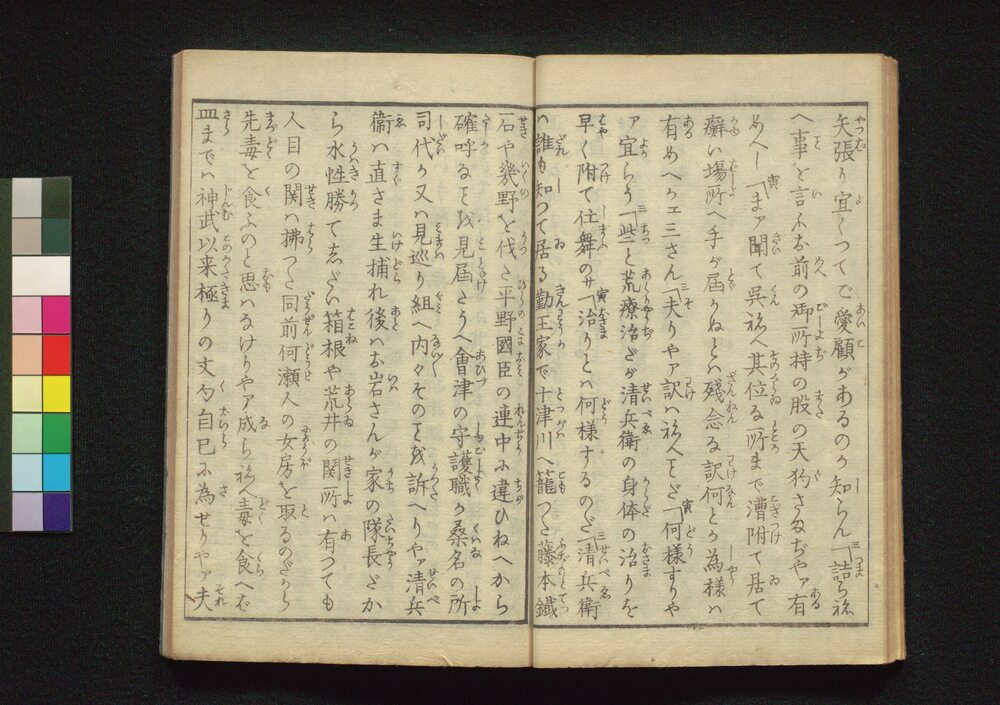 矢張り宜くつてご愛顧があるのか知らん「詰ら祢
へ事を言ふお前の御所持の股の天狗さまぢやァ有
めへし「まァ聞て呉祢へ其位な所まで漕附て居て
癬い場所へ手が届かねとハ残念な訳何とか為様ハ
有めへかエ三さん「夫りやァ訳ハ祢へとだ「何様すりや
ァ宜らう「些と荒療治だが清兵衛の身体の治りを
早く附て仕舞のサ「治りとハ何様するのだ「清兵衛
ハ誰も知つて居る勤王家で十津川へ籠つた藤本鐵
石や幾野を伐た平野國臣の連中に違ひねへから
確呼なとを見届たうへ會津の守護職か桑名の所
司代か又ハ見巡り組へ内々そのとを訴へりやァ清兵
衛ハ直さま生捕れ後ハお岩さんが家の隊長だか
ら水性勝てゑだい箱根や荒井の関所ハ有つても
人目の関ハ拂つた同前何瀬人の女房を取るのだから
先毒を食ふのと思ハなけりやァ成ら祢へ毒を食へバ
皿までハ神武以来極りの文句自己に為せりやァ夫